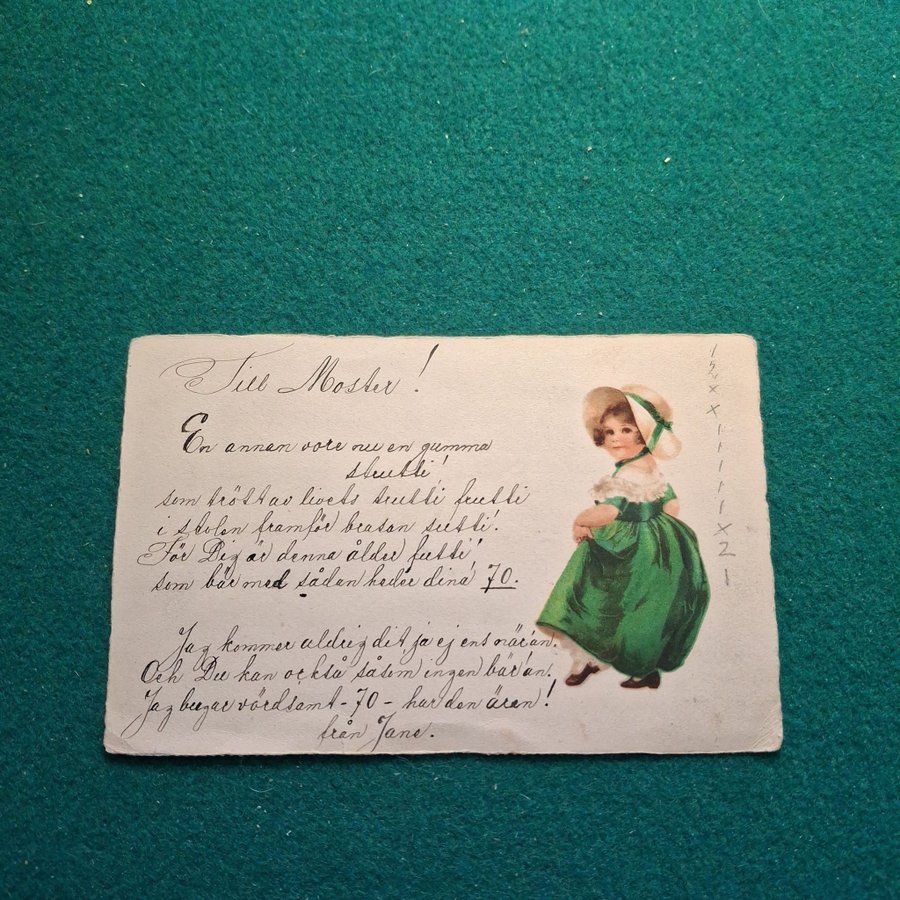 Till Moster!
En annan vore nu en gumma
strutti!
som trött av livets trutti, frutti
i stolen framför brasan sutti!
För Dig är denna ålder futti!
som bär med sådan heder dina 70.
Jag kommer aldrig dit ja ej ens när'an.
Och Du kan också såsom ingen bär'an.
Jag bugar vördsamt - 70 - har den äran!
från Jane.
1
x
x
1
1
1
1
1
x
2
1